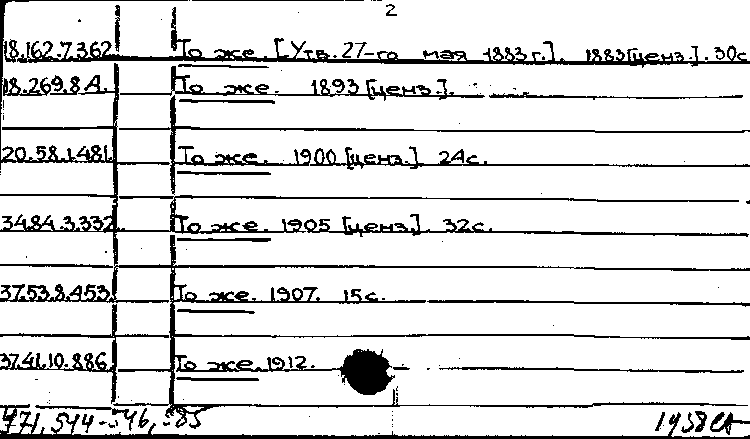 2
18.162.7.362 То же. [Утв. 27-го мая 1883 г.]. 1883 [ценз.]. 30с
18.269.8А. То же. 1893 [ценз.].
20.58.1.481. То же. 1900 [ценз.]. 24с.
34.84.3.332. То же. 1905 [ценз.]. 32с.
37.53.8.453. То же. 1907. 15с.
37.41.10.886. То же. 1912.
544-546, 585